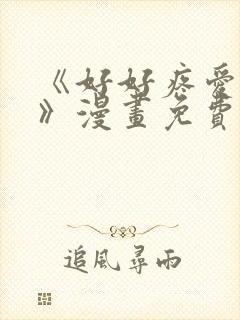 《好好疼愛
》漫畫免費
追風尋雨